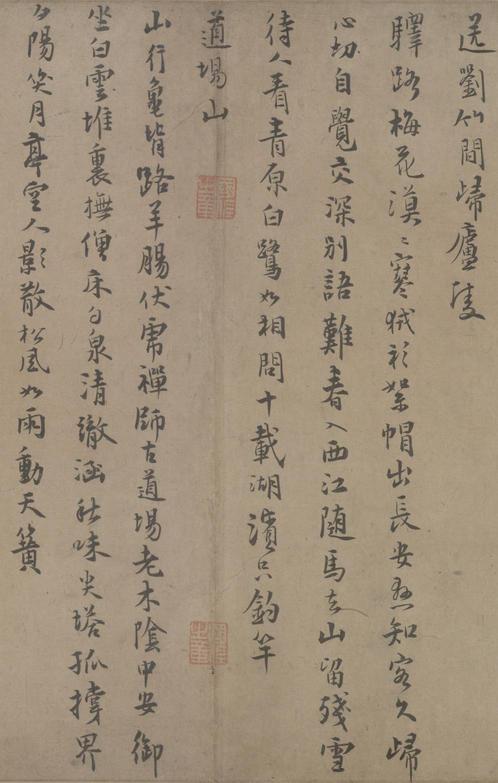 送劉竹間歸廬陵
驛路梅花漠〻寒狨衫絮帽出長安悬知客久歸
心切自覺交深別語難春入西江隨馬去山留殘雪
待人看青原白鷺如相問十載湖濱只釣竿
道場山
山行龜背路羊腸伏虎禪師古道場老木陰中安御
坐白雲堆裏撫僧床勺泉清徹涵秋味尖塔孤撐界
夕陽笑月亭空人影散松風如雨動天簧